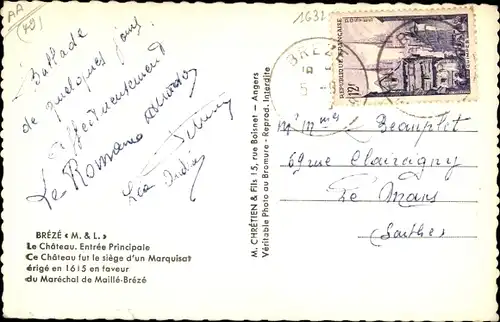 AA
(49)
1632
Ballade
de quelques jours
affectueusement
BREZÉ
5 -8
RÉPUBLIQUE FRANÇAISE
POSTES
QUIMPER
12F
M. CHRÉTIEN & Fils 15, rue Boisnet - Angers
Véritable Photo au Bromure - Reprod. Interdite
Mr Mmes Beauplet
69 rue
Le Mans
Sarthe
BRÉZÉ « M. & L. »
Le Château. Entrée Principale
Ce Château fut le siège d'un Marquisat
érigé en 1615 en faveur
du Maréchal de Maillé-Brézé